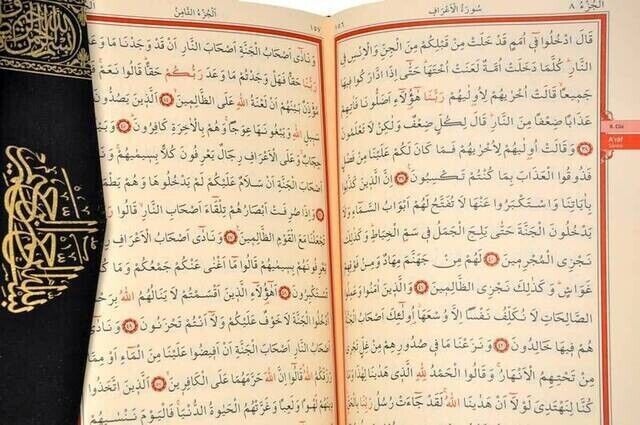 الْجُزْءُ ٨
سُورَةُ الْأَعْرَافِ
قَالَ ادْخُلُوا فِي أُمَمٍ قَدْ خَلَتْ مِنْ قَبْلِكُمْ مِنَ الْجِنِّ وَالْاِنْسِ فِي
النَّارِ كُلَّمَا دَخَلَتْ أُمَّةٌ لَعَنَتْ أُخْتَهَا حَتَّى إِذَا ادَّارَكُوا فِيهَا
جَمِيعًا قَالَتْ أُخْرٰيهُمْ لِأُولٰيهُمْ رَبَّنَا هٰؤُلَاءِ أَضَلُّونَا فَاٰتِهِمْ
عَذَابًا ضِعْفًا مِنَ النَّارِ قَالَ لِكُلٍّ ضِعْفٌ وَلٰكِنْ لَا تَعْلَمُونَ
﴿٣٨﴾ وَقَالَتْ أُولٰيهُمْ لِأُخْرٰيهُمْ فَمَا كَانَ لَكُمْ عَلَيْنَا مِنْ فَضْلٍ
فَذُوقُوا الْعَذَابَ بِمَا كُنْتُمْ تَكْسِبُونَ ﴿٣٩﴾ إِنَّ الَّذِينَ كَذَّبُوا
بِاٰيَاتِنَا وَاسْتَكْبَرُوا عَنْهَا لَا تُفَتَّحُ لَهُمْ أَبْوَابُ السَّمَاءِ وَلَا
يَدْخُلُونَ الْجَنَّةَ حَتَّى يَلِجَ الْجَمَلُ فِي سَمِّ الْخِيَاطِ وَكَذٰلِكَ
نَجْزِي الْمُجْرِمِينَ ﴿٤٠﴾ لَهُمْ مِنْ جَهَنَّمَ مِهَادٌ وَمِنْ فَوْقِهِمْ
غَوَاشٍ وَكَذٰلِكَ نَجْزِي الظَّالِمِينَ ﴿٤١﴾ وَالَّذِينَ اٰمَنُوا وَعَمِلُوا
الصَّالِحَاتِ لَا نُكَلِّفُ نَفْسًا إِلَّا وُسْعَهَا أُولٰئِكَ أَصْحَابُ الْجَنَّةِ
هُمْ فِيهَا خَالِدُونَ ﴿٤٢﴾ وَنَزَعْنَا مَا فِي صُدُورِهِمْ مِنْ غِلٍّ تَجْرِي
مِنْ تَحْتِهِمُ الْأَنْهَارُ وَقَالُوا الْحَمْدُ لِلّٰهِ الَّذِي هَدٰينَا لِهٰذَا وَمَا
كُنَّا لِنَهْتَدِيَ لَوْلَا أَنْ هَدٰينَا اللّٰهُ لَقَدْ جَاءَتْ رُسُلُ رَبِّنَا بِالْحَقِّ
8. Cüz
A'râf
Sûresi
اَلْجُزْءُ الثَّامِنُ
وَنَادٰى أَصْحَابُ الْجَنَّةِ أَصْحَابَ النَّارِ أَنْ قَدْ وَجَدْنَا مَا وَعَدَنَا
رَبُّنَا حَقًّا فَهَلْ وَجَدْتُمْ مَا وَعَدَ رَبُّكُمْ حَقًّا قَالُوا نَعَمْ
مُؤَذِّنٌ بَيْنَهُمْ أَنْ لَعْنَةُ اللّٰهِ عَلَى الظَّالِمِينَ ﴿٤٤﴾ الَّذِينَ يَصُدُّونَ
سَبِيلِ اللّٰهِ وَيَبْغُونَهَا عِوَجًا وَهُمْ بِالْاٰخِرَةِ كَافِرُونَ ﴿٤٥﴾
حِجَابٌ وَعَلَى الْأَعْرَافِ رِجَالٌ يَعْرِفُونَ كُلًّا بِسِيمٰيهُمْ
أَصْحَابَ الْجَنَّةِ أَنْ سَلَامٌ عَلَيْكُمْ لَمْ يَدْخُلُوهَا وَهُمْ يَطْمَعُونَ
﴿٤٦﴾ وَإِذَا صُرِفَتْ أَبْصَارُهُمْ تِلْقَاءَ أَصْحَابِ النَّارِ قَالُوا
تَجْعَلْنَا مَعَ الْقَوْمِ الظَّالِمِينَ ﴿٤٧﴾ وَنَادٰى أَصْحَابُ الْأَعْرَافِ
يَعْرِفُونَهُمْ بِسِيمٰيهُمْ قَالُوا مَا أَغْنٰى عَنْكُمْ جَمْعُكُمْ وَمَا
تَسْتَكْبِرُونَ ﴿٤٨﴾ أَهٰؤُلَاءِ الَّذِينَ أَقْسَمْتُمْ لَا يَنَالُهُمُ اللّٰهُ
أُدْخُلُوا الْجَنَّةَ لَا خَوْفٌ عَلَيْكُمْ وَلَا أَنْتُمْ تَحْزَنُونَ ﴿٤٩﴾ وَنَادٰى
أَصْحَابُ النَّارِ أَصْحَابَ الْجَنَّةِ أَنْ أَفِيضُوا عَلَيْنَا مِنَ الْمَاءِ أَوْ مِمَّا
رَزَقَكُمُ اللّٰهُ قَالُوا إِنَّ اللّٰهَ حَرَّمَهُمَا عَلَى الْكَافِرِينَ ﴿٥٠﴾ الَّذِينَ اتَّخَذُوا
دِينَهُمْ لَهْوًا وَلَعِبًا وَغَرَّتْهُمُ الْحَيٰوةُ الدُّنْيَا فَالْيَوْمَ نَنْسٰيهُمْ